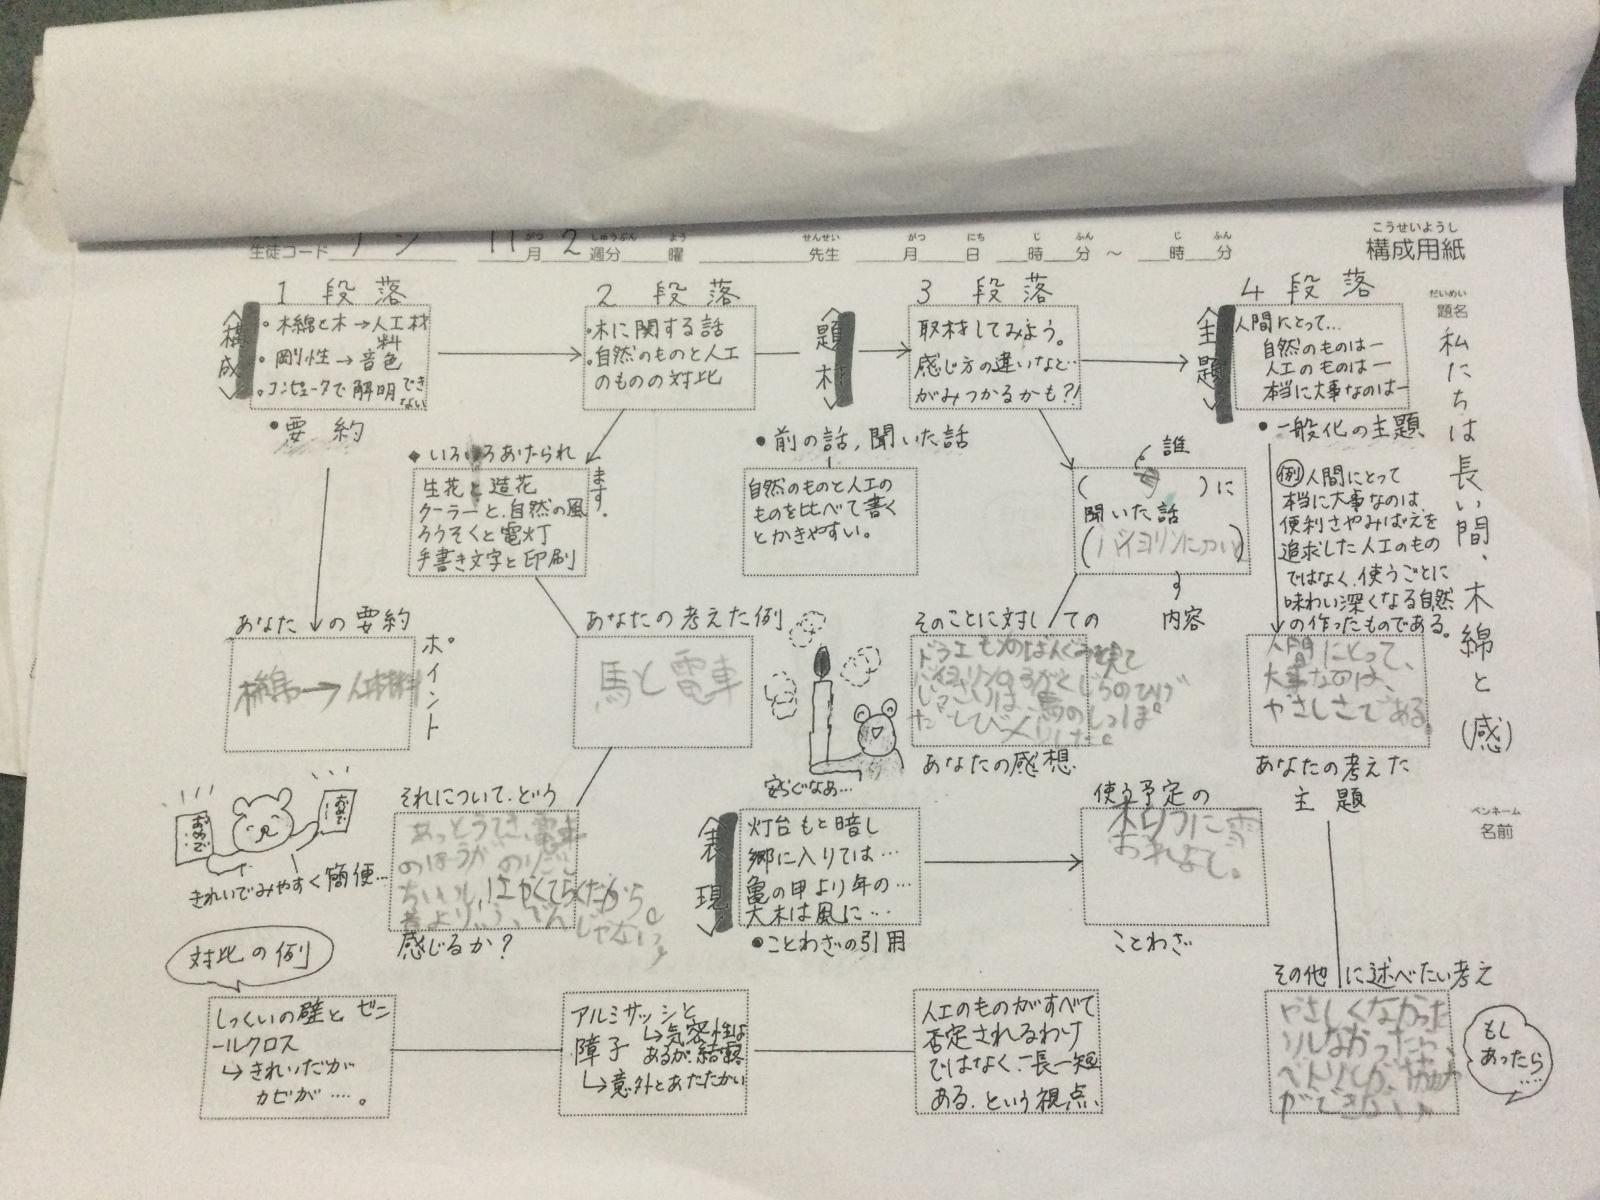 こうせいようし
構成用紙
生徒コード
11月2週分 曜
せんせい
先生
月 日 時 分 ～ 時 分
だいめい
題名
私たちは長い間、木綿と(感)
ペンネーム
名前
1 段 落
〈構成〉
・木綿と木→人工材料
・剛性→音色
・コンピュータで解明できない
・要約
あなたの要約
ポイント
2 段 落
・木に関する話
・自然のものと人工
のものの対比
◆いろいろあげられ
ます。
生花と造花
クーラーと自然の風
ろうそくと電灯
手書き文字と印刷
あなたの考えた例
馬と電車
それについて、どう
感じるか?
〈題材〉
・前の話,聞いた話
自然のものと人工の
ものを比べて書く
とかきやすい。
3 段 落
取材をしてみよう。
感じ方の違いなど…
がみつかるかも?!
誰
( 母 )に
聞いた話
(バイオリンについて)
内容
そのことに対しての
あなたの感想
安らぐなあ…
〈主題〉
4 段 落
人間にとって…
自然のものはー
人工のものはー
本当に大事なのはー
・一般化の主題
例 人間にとって
本当に大事なのは、
便利さやみばえを
追求した人工のもの
ではなく、使うごとに
味わい深くなる自然
の作ったものである。
人間にとって、
大事なのは、
やさしさである。
あなたの考えた
主 題
きれいでみやすく簡便…
〈表現〉
灯台もと暗し
郷に入りては…
亀の甲より年の…
大木は風に…
・ことわざの引用
使う予定の
ことわざ
対比の例
しっくいの壁とビニ
ールクロス
↳きれいだが
カビが…。
アルミサッシと
↳気密性は
あるが結露
障子
↳意外とあたたかい
人工のものがすべて
否定されるわけ
ではなく、一長一短
ある、という視点、
その他に述べたい考え
もし
あったら
…